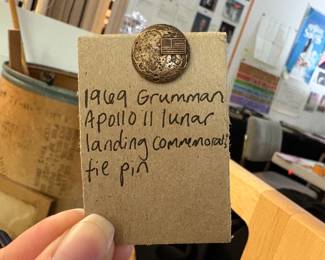 1969 Grumman
Apollo 11 lunar
landing commemorati
tie pin